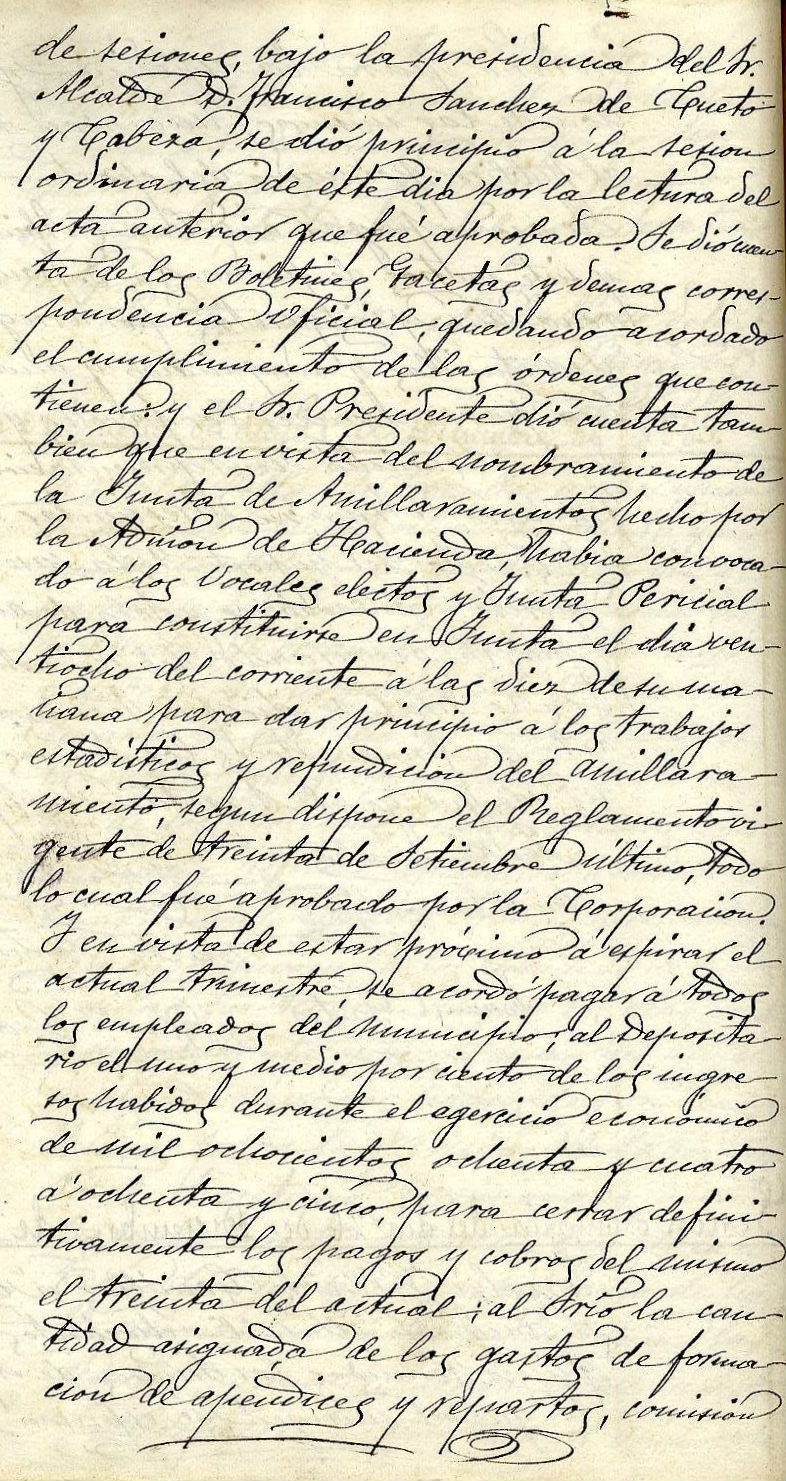 de sesiones, bajo la presidencia del Sr.
Alcalde D. Francisco Sanchez de Cueto
y Cabeza, se dió principio á la sesion
ordinaria de éste dia por la lectura del
acta anterior que fué aprobada. Se dió cuen-
ta de los Boletines, Gacetas y demas corres-
pondencia oficial, quedando acordado
el cumplimiento de las órdenes que con-
tienen: y el Sr. Presidente dió cuenta tam-
bien que en vista del nombramiento de
la Junta de Amillaramientos hecho por
la Admon de Hacienda, habia convoca-
do á los Vocales electos y Junta Pericial
para constituirse en Junta el dia vein-
tiocho del corriente á las diez de su ma-
ñana para dar principio á los trabajos
estadísticos y refundicion del amillara-
miento, segun dispone el Reglamento vi-
gente de treinta de Setiembre último, todo
lo cual fué aprobado por la Corporacion.
Y en vista de estar prócsimo á espirar el
actual trimestre, se acordó pagar á todos
los empleados del Municipio; al Deposita-
rio el uno y medio por ciento de los ingre-
sos habidos durante el egercicio económico
de mil ochocientos ochenta y cuatro
á ochenta y cinco, para cerrar defini-
tivamente los pagos y cobros del mismo
el treinta del actual; al Srio la can-
tidad asignada de los gastos de forma-
cion de apendices y repartos, comision